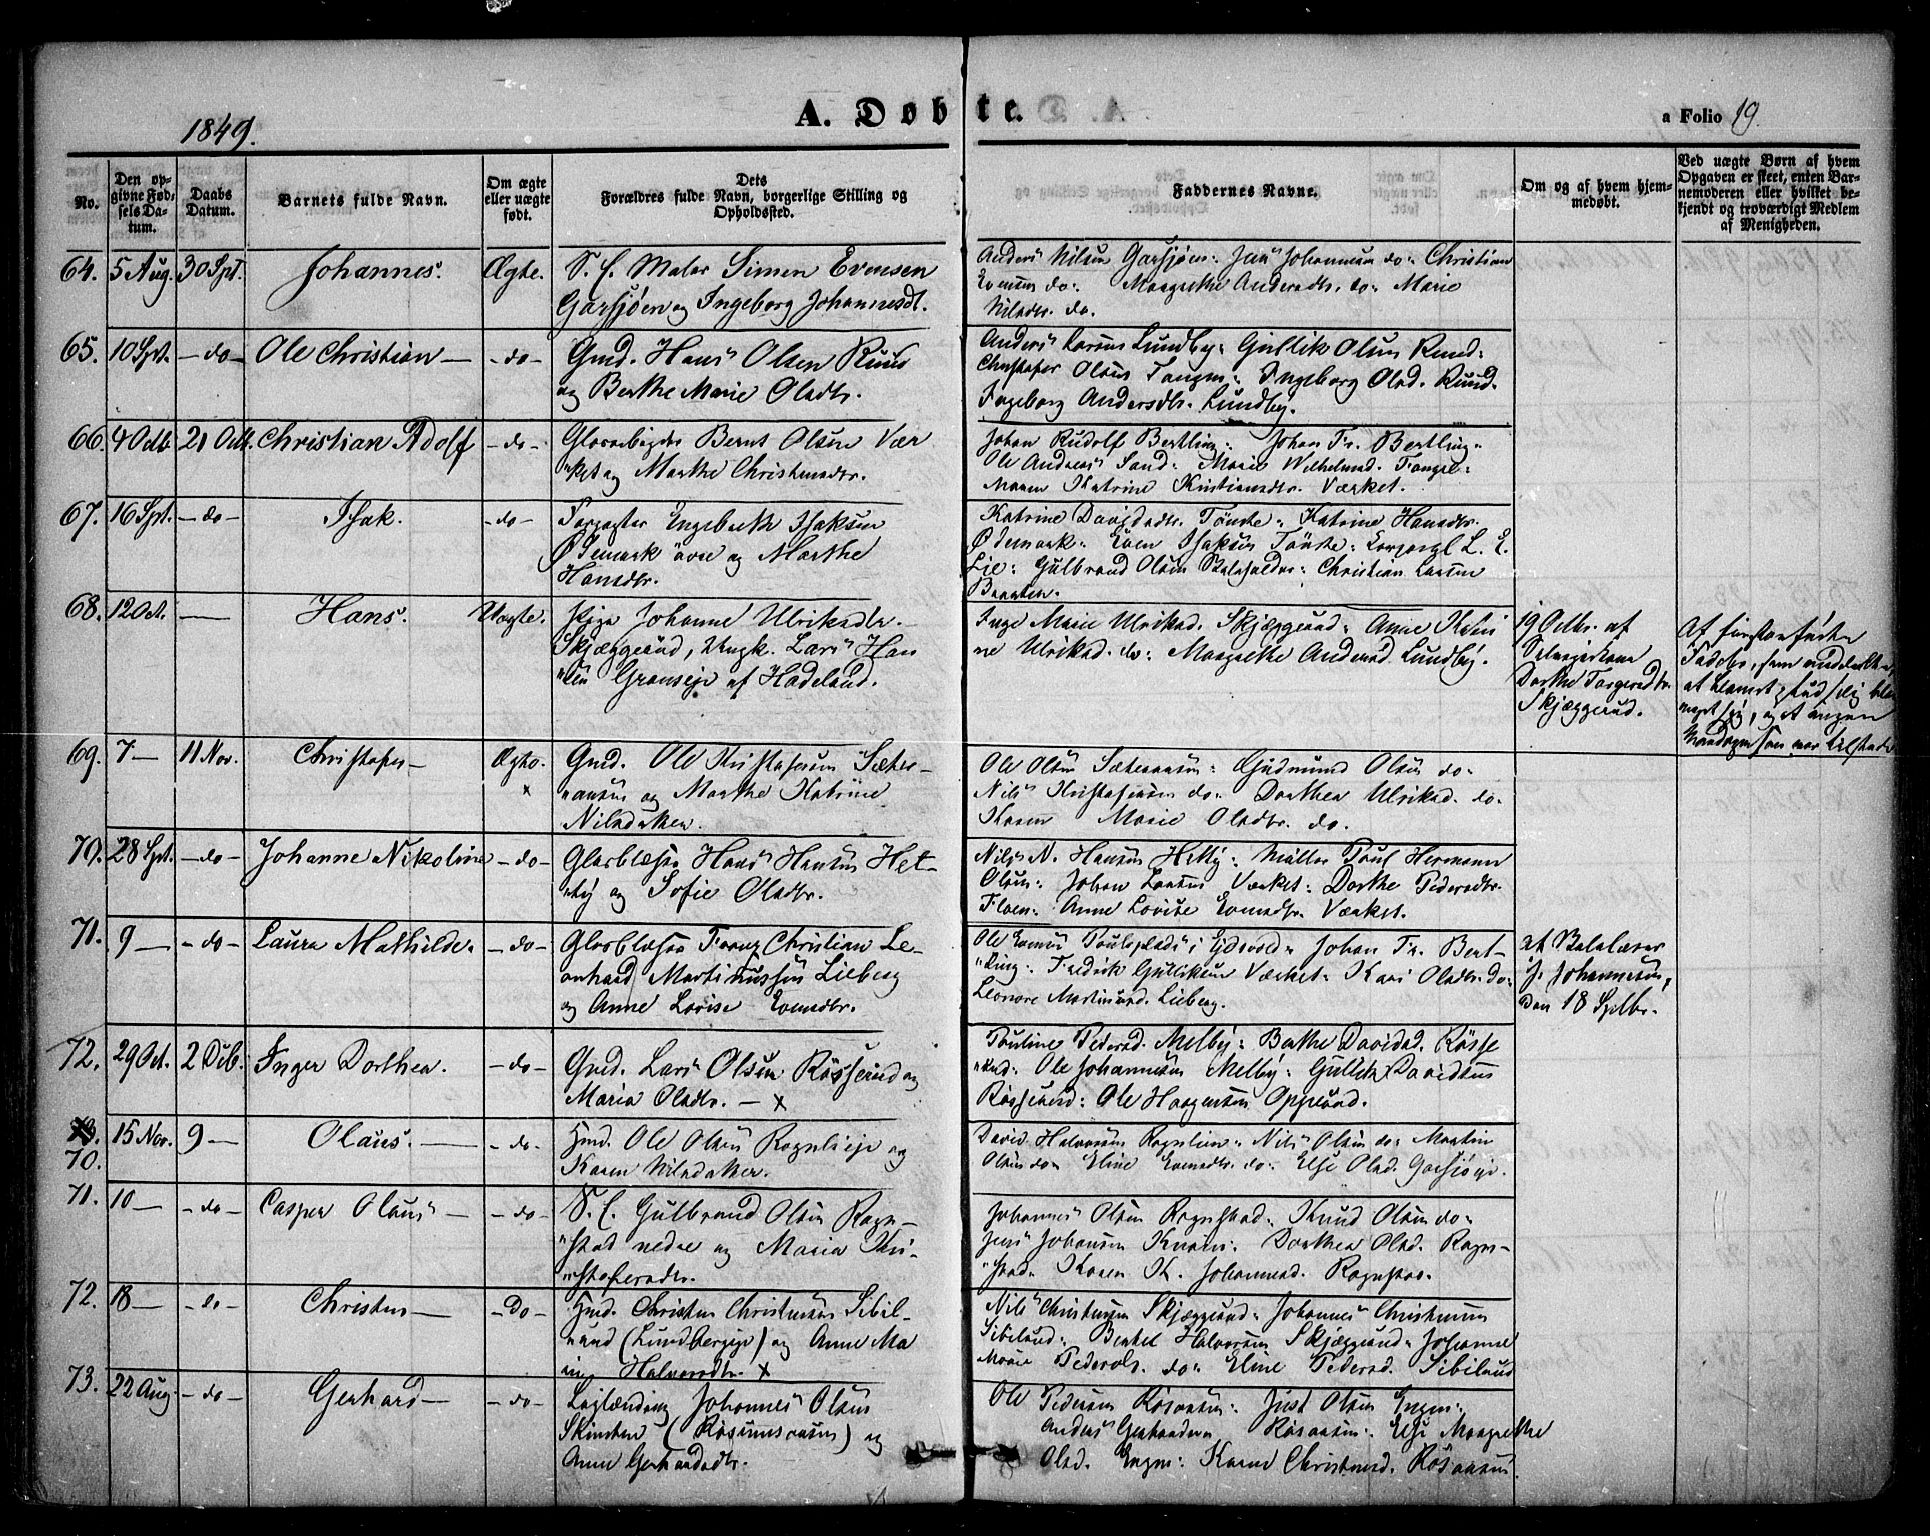 1849.
A. Døbte.
a Folio 19.
No.
Den opgivne Fødsels Datum.
Daabs Datum.
Barnets fulde Navn.
Om ægte eller uægte født.
Dets Forældres fulde Navn, borgerlige Stilling og Opholdssted.
Faddernes Navne.
Om og af hvem hjemmedøbt.
Ved uægte Børn af hvem Opgaven er skeet, enten Barnemoderen eller hvilket bekjendt og troværdigt Medlem af Menigheden.
64. 5 Aug. 30 Spt. Johannes. Ægte. S. C. Maler Simen Evensen
Garsjøen og Ingeborg Johannesdt.
Anders Nilsen Garsjøen: Jens Johannesen do: Christian
Evensen do: Margrethe Andersdtr. do: Marie
Nilsdtr. do.
65. 10 Spt. - do - Ole Christian - - do - Gmd. Hans Olsen Ruud
og Berthe Marie Olsdtr.
Anders Larsen Lundby: Gullik Olsen Ruud:
Christofer Olsen Tangen: Ingeborg Olsd. Ruud.
Ingeborg Andersdtr. Lundby.
66. 4 Octb. 21 Octb. Christian Adolf - do - Glasarbeider Bernt Olsen Vær
"ket og Marthe Christensdtr.
Johan Rudolf Bertling: Johan Fr. Bertling:
Ole Andreas Sand: Marie Wilhelmsd. Tangen:
Maren Katrine Kristiansdtr. Værket.
67. 16 Spt. - do - Isak. - do - Forpagter Engebreth Isaksen
Ødemark övre og Marthe
Hansdtr.
Katrine Davidsdtr. Tönste: Katrine Hansdtr.
Ødemark: Even Isaksen Tönste: Korporal L. E.
Lie: Gulbrand Olsen: Christian Larsen
Braaten.
68. 12 Oct. — Hans. Uægte. Pige Johanne Ulriksdtr.
Skjæggerud, Ungk. Lars Han
"sen Granseje af Hadeland.
Inge Marie Ulriksd. Skjæggerud: Anne Katri
ne Ulriksd. do: Margrethe Andersd. Lundby.
19 Octbr. af
Dorthe Torgersdtr.
Skjæggerud.
69. 7 — 11 Nov. Christofer - Ægte. Gmd. Ole Kristofersen Sæter-
"aasen og Marthe Katrine
Nilsdatter.
Ole Olsen Sæteraasen: Gudmund Olsen do:
Nils Kristofersen do: Dorthea Ulriksd. do:
Karen Marie Olsdtr. do.
70. 28 Spt. - do - Johanne Nikoline - do - Glasblæser Hans Hansen Het-
"by og Sofie Olsdtr.
Nils N. Hansen Hetby: Møller Poul Hermann
Olsen: Johan Larsen Værket: Dorthe Pedersdtr.
Floen: Anne Lovise Evensdtr. Værket.
71. 9 — - do - Laura Mathilde. - do - Glasblæser Franz Christian Le-
onhard Martinussen Lieberg
og Anne Lovise Evensdtr.
Ole Evensen Poulsplads i Eidsvold: Johan Fr. Bert-
"ling: Fredrik Gulliksen Værket: Kari Olsdtr. do:
Leonore Martinusd. Lieberg.
af
J. Johannesen,
den 18 Sptbr.
72. 29 Oct. 2 Dcb. Inger Dorthea. - do - Gmd. Lars Olsen Røsserud og
Maria Olsdtr. - x
Pauline Pedersd. Melby: Berthe Davidsd. Røsse
"rud: Ole Johannesen Melby: Gullik Davidsen
Røsserud: Ole Haagensen Opperud.
73. 70. 15 Nov. 9 — Olaus. - do - Hmd. Ole Olsen Rognlieje og
Karen Nilsdatter.
David Halvorsen Rognlien: Nils Olsen do: Martin
Olsen do: Eline Evensdtr. do: Else Olsd. Garsjøeje.
71. 10 — - do - Casper Olaus - - do - S. C. Gulbrand Olsen Rogn-
"stad nedre og Maria Kri-
"stofersdtr.
Johannes Olsen Rognstad: Knud Olsen do:
Jens Johansen: Dorthea Olsd. Rogn-
"stad: Karen K. Johannesd. Rognstad.
72. 18 — - do - Christen - - do - Hmd. Christen Christensen Sibil-
"rund (Lundbergeje) og Anne Ma
rie Halvorsdtr. x
Nils Christensen Skjæggerud: Johannes Christensen
Sibilrud: Berthel Halvorsen Skjæggerud: Johanne
Marie Pedersdr. do: Eline Pedersd. Sibilrud
73. 22 Aug. - do - Gerhard - - do - Johannes Olsen
Skinsten (Røsaasen) og
Anne Gerhardsdtr.
Ole Pedersen Røsaasen: Just Olsen Engen:
Anders Gerhardsen Røsaasen: Else Margrethe
Olsd. Engen: Karen Christensd. Røsaasen.